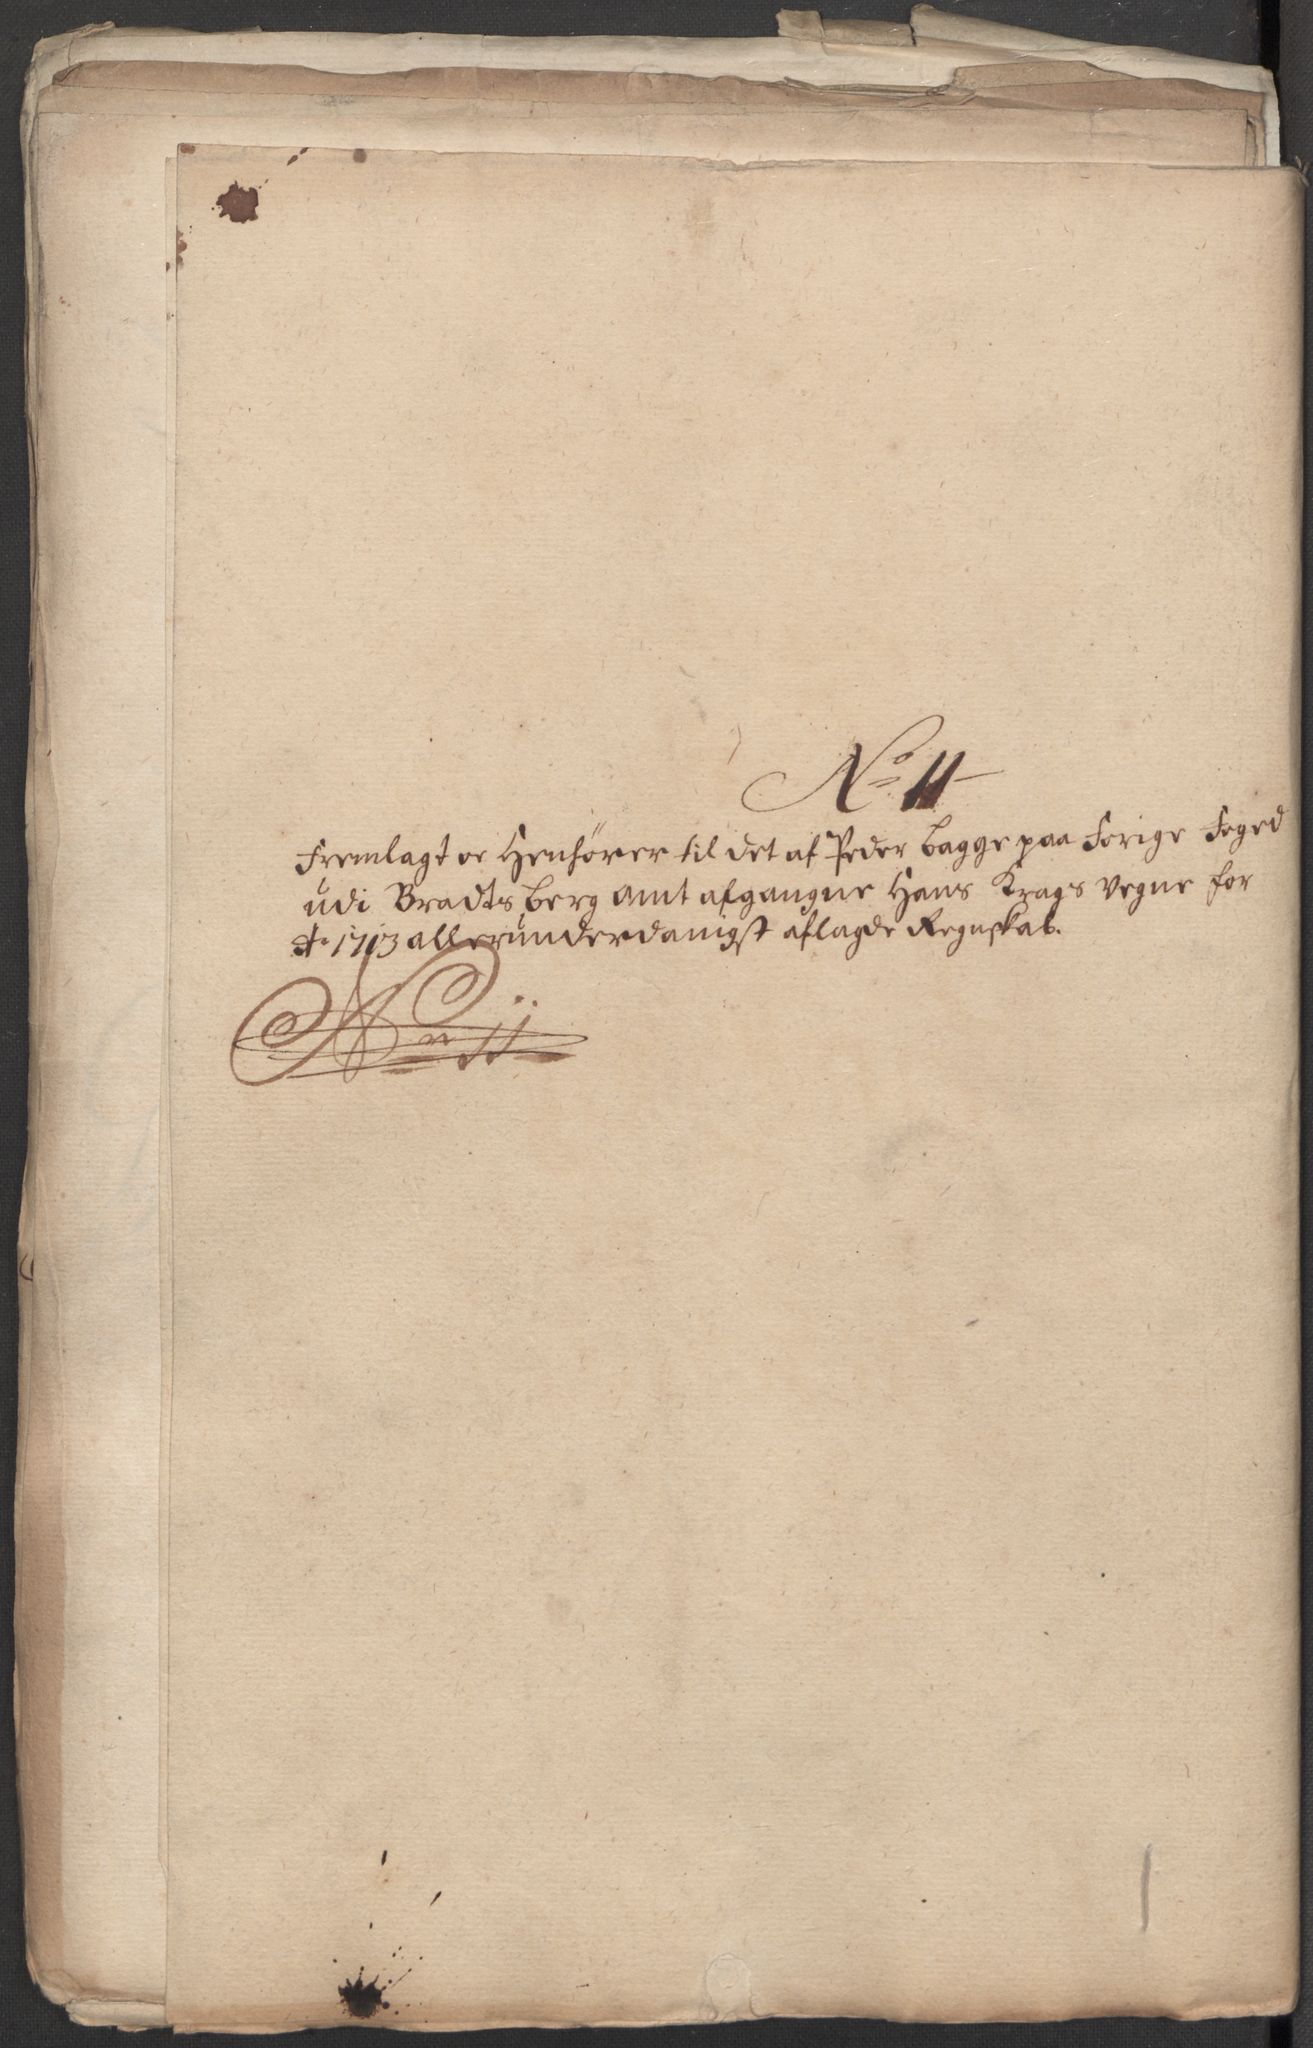 No 11
Fremlagt oc Henhörer til det af Peder Bagge paa Forige Foged
udi Bradtsberg amt afgangne Hans Krags vegne for
Ao 1713 allerunderdanigst aflagde Regnskab.